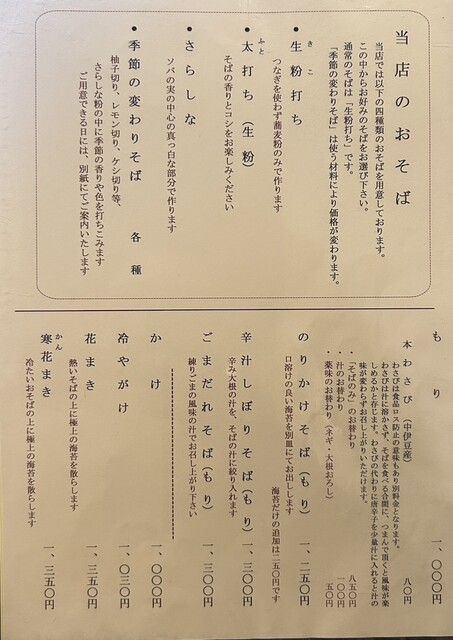 当店のおそば
当店では以下の四種類のおそばを用意しております。
この中からお好みのそばをお選び下さい。
通常のそばは「生粉打ち」です。
「季節の変わりそば」は使う材料により価格が変わります。
●生粉打ち
きこ
つなぎを使わず蕎麦粉のみで作ります
●太打ち（生粉）
ふと
そばの香りとコシをお楽しみください
●さらしな
ソバの実の中心の真っ白な部分で作ります
●季節の変わりそば 各種
柚子切り、レモン切り、ケシ切り等、
さらしな粉の中に季節の香りや色を打ちこみます
ご用意できる日には、別紙にてご案内いたします
もり 一、〇〇〇円
本わさび（中伊豆産） 八〇円
わさびは食品ロス防止の意味もあり別料金となります。
わさびは汁に溶かさず、そばを食べる合間に、つまんで頂くと風味が楽
しめるかと存じます。わさびの代わりに唐辛子を少量汁に入れると汁の
味が変わらずお召し上がりいただけます。
・「そばのみ」のお替わり 八五〇円
・汁のお替わり 一〇〇円
・薬味のお替わり（ネギ・大根おろし） 五〇円
のりかけそば（もり） 一、二五〇円
口溶けの良い海苔を別皿にてお出しします
海苔だけの追加は二五〇円です
辛汁しぼりそば（もり） 一、三〇〇円
辛み大根の汁を、そばの汁に絞り入れます
ごまだれそば（もり） 一、三〇〇円
練りごまの風味の汁でお召し上がり下さい
かけ 一、〇〇〇円
冷やがけ 一、〇三〇円
花まき 一、三五〇円
熱いそばの上に極上の海苔を散らします
寒花まき 一、三五〇円
かん
冷たいおそばの上に極上の海苔を散らします